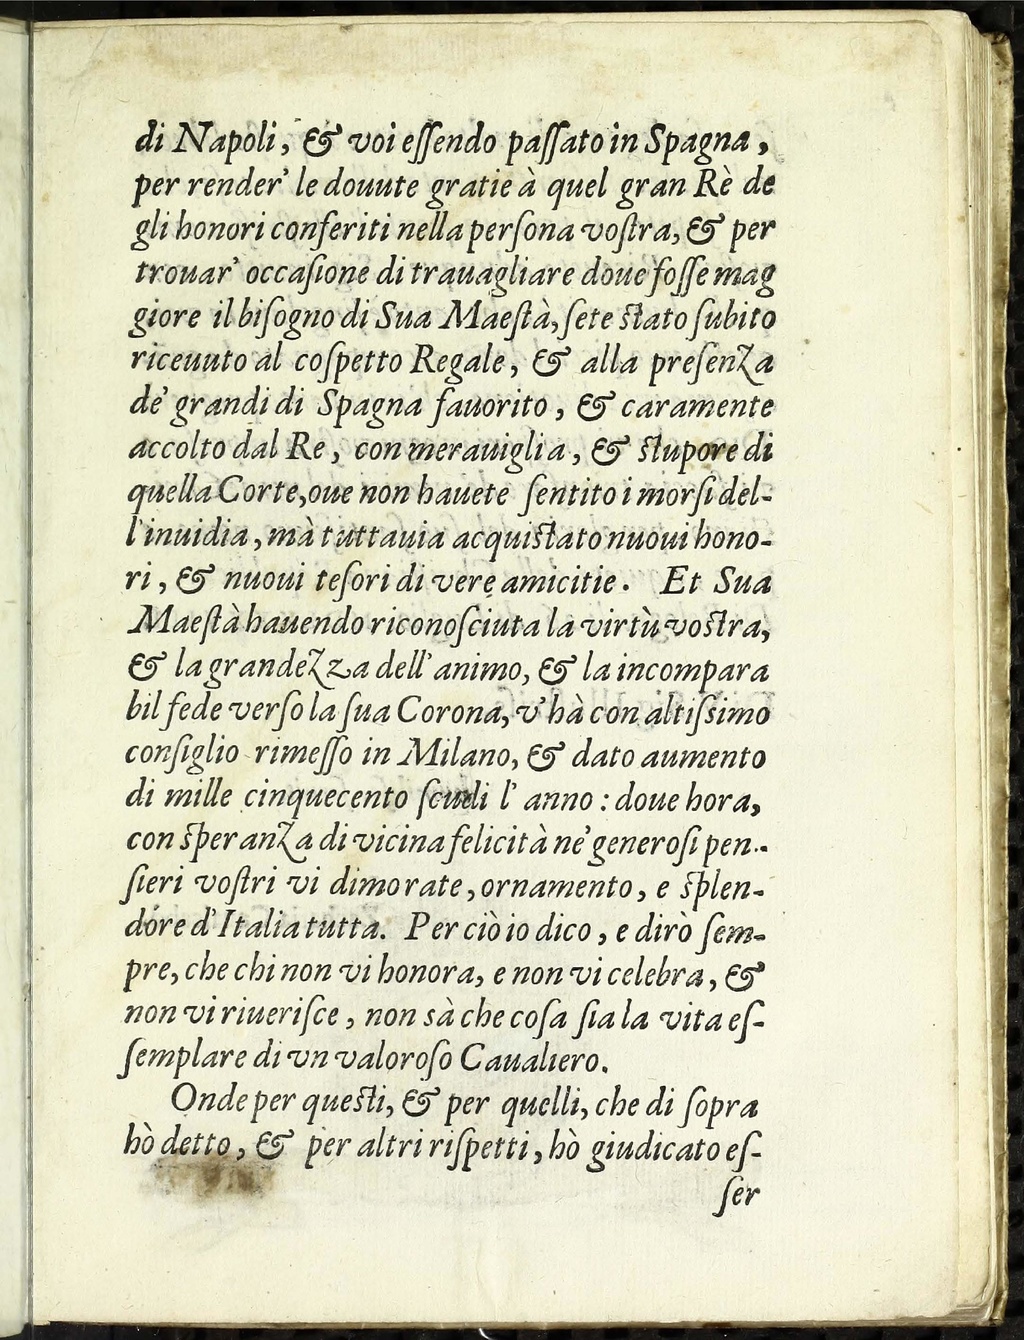 di Napoli, & voi eſſendo paſſato in Spagna,
per render' le douute gratie à quel gran Rè de
gli honori conferiti nella perſona voſtra, & per
trouar' occaſione di trauagliare doue foſſe mag
giore il biſogno di Sua Maeſtà, ſete ſtato ſubito
riceuuto al coſpetto Regale, & alla preſenza
de' grandi di Spagna fauorito, & caramente
accolto dal Re, con merauiglia, & ſtupore di
quella Corte, oue non hauete ſentito i morſi del-
l'inuidia, mà tuttauia acquiſtato nuoui hono-
ri, & nuoui teſori di vere amicitie. Et Sua
Maeſtà hauendo riconoſciuta la virtù voſtra,
& la grandezza dell' animo, & la incompara
bil fede verſo la ſua Corona, v'hà con altiſsimo
conſiglio rimeſſo in Milano, & dato aumento
di mille cinquecento ſcudi l' anno: doue hora,
con ſperanza di vicina felicità ne' generoſi pen-
ſieri voſtri vi dimorate, ornamento, e ſplen-
dore d'Italia tutta. Per ciò io dico, e dirò ſem-
pre, che chi non vi honora, e non vi celebra, &
non vi riueriſce, non sà che coſa ſia la vita eſ-
ſemplare di vn valoroſo Caualiero.
Onde per queſti, & per quelli, che di ſopra
hò detto, & per altri riſpetti, hò giudicato eſ-
ſer